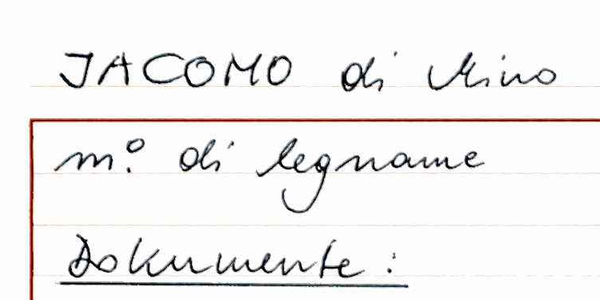 JACOMO di Mino
m.º di legname
Dokumente: